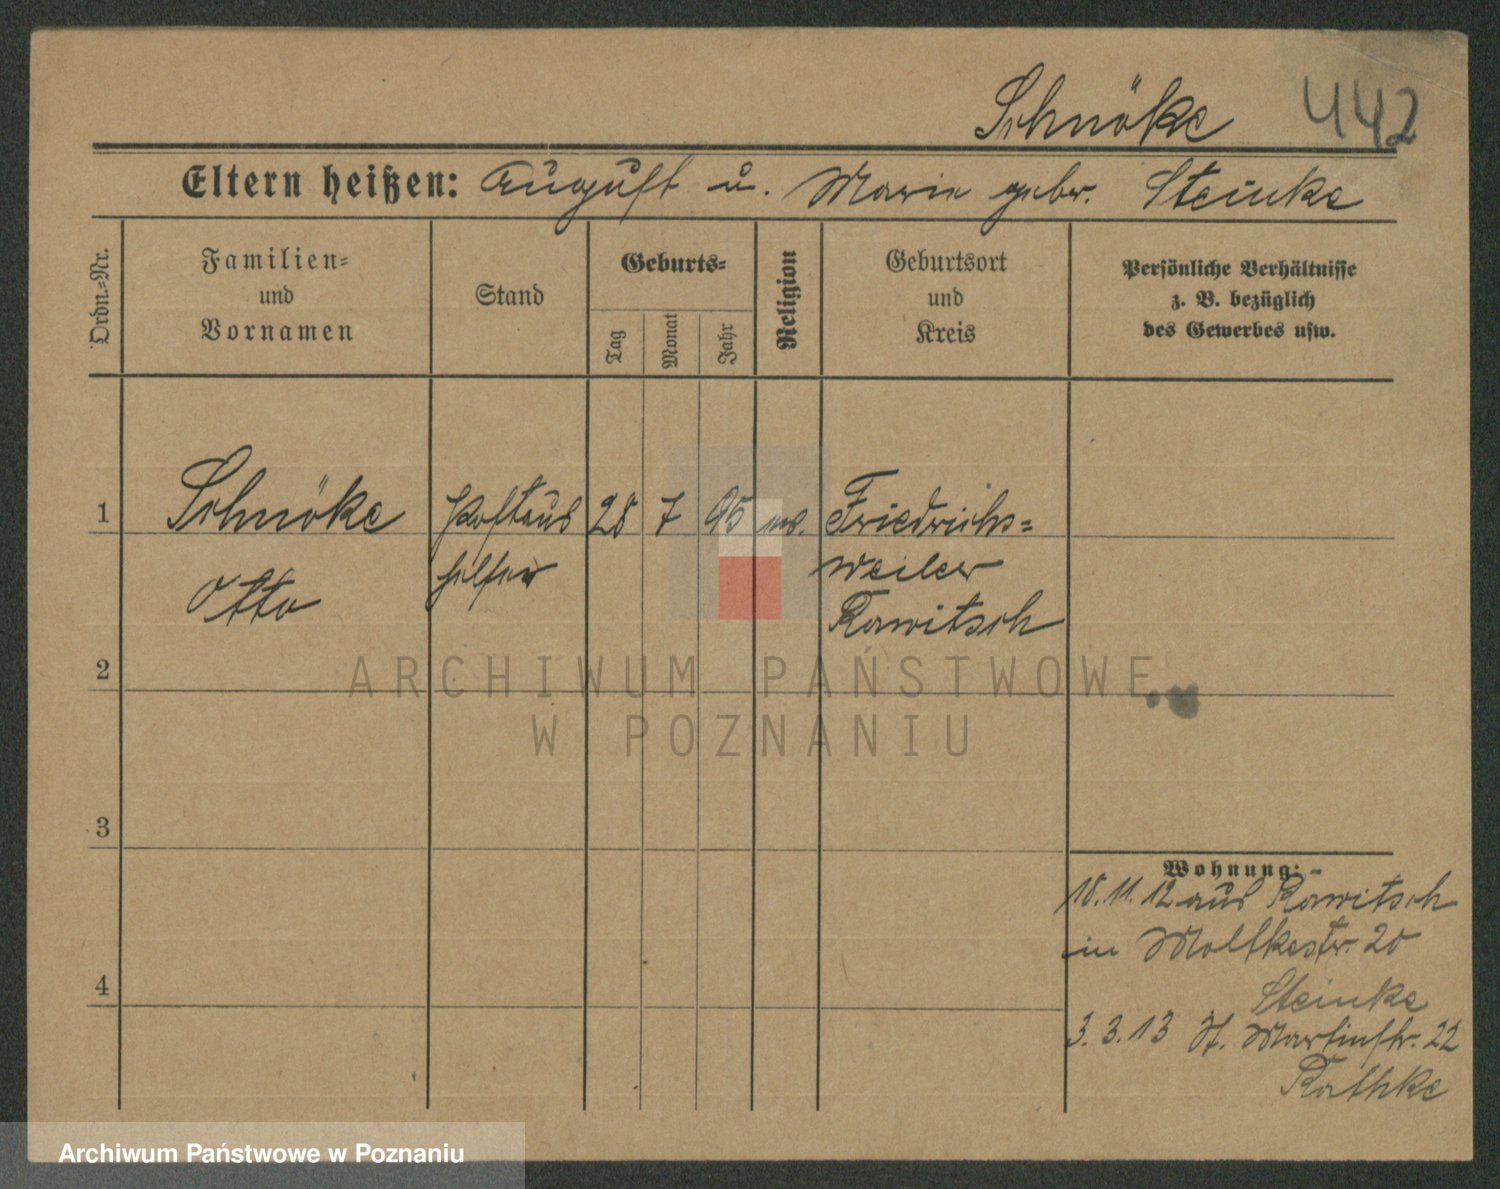 Schnöke 442
Eltern heißen: August u. Marie gebr. Steinke
Ordn.-Nr.
Familien-
und
Vornamen
Stand
Geburts-
Tag
Monat
Jahr
Religion
Geburtsort
und
Kreis
Persönliche Verhältnisse
z. B. bezüglich
des Gewerbes usw.
1 Schnöke Postaus 28 7 95 Friedrichs=
helfer weiler
Otto Rawitsch
2
3
4
Wohnung:
18.11.12 aus Rawitsch
in Moltkestr. 20
Steinke
3.3.13 St. Martinstr. 22
Rathke
ARCHIWUM PAŃSTWOWE
W POZNANIU
Archiwum Państwowe w Poznaniu